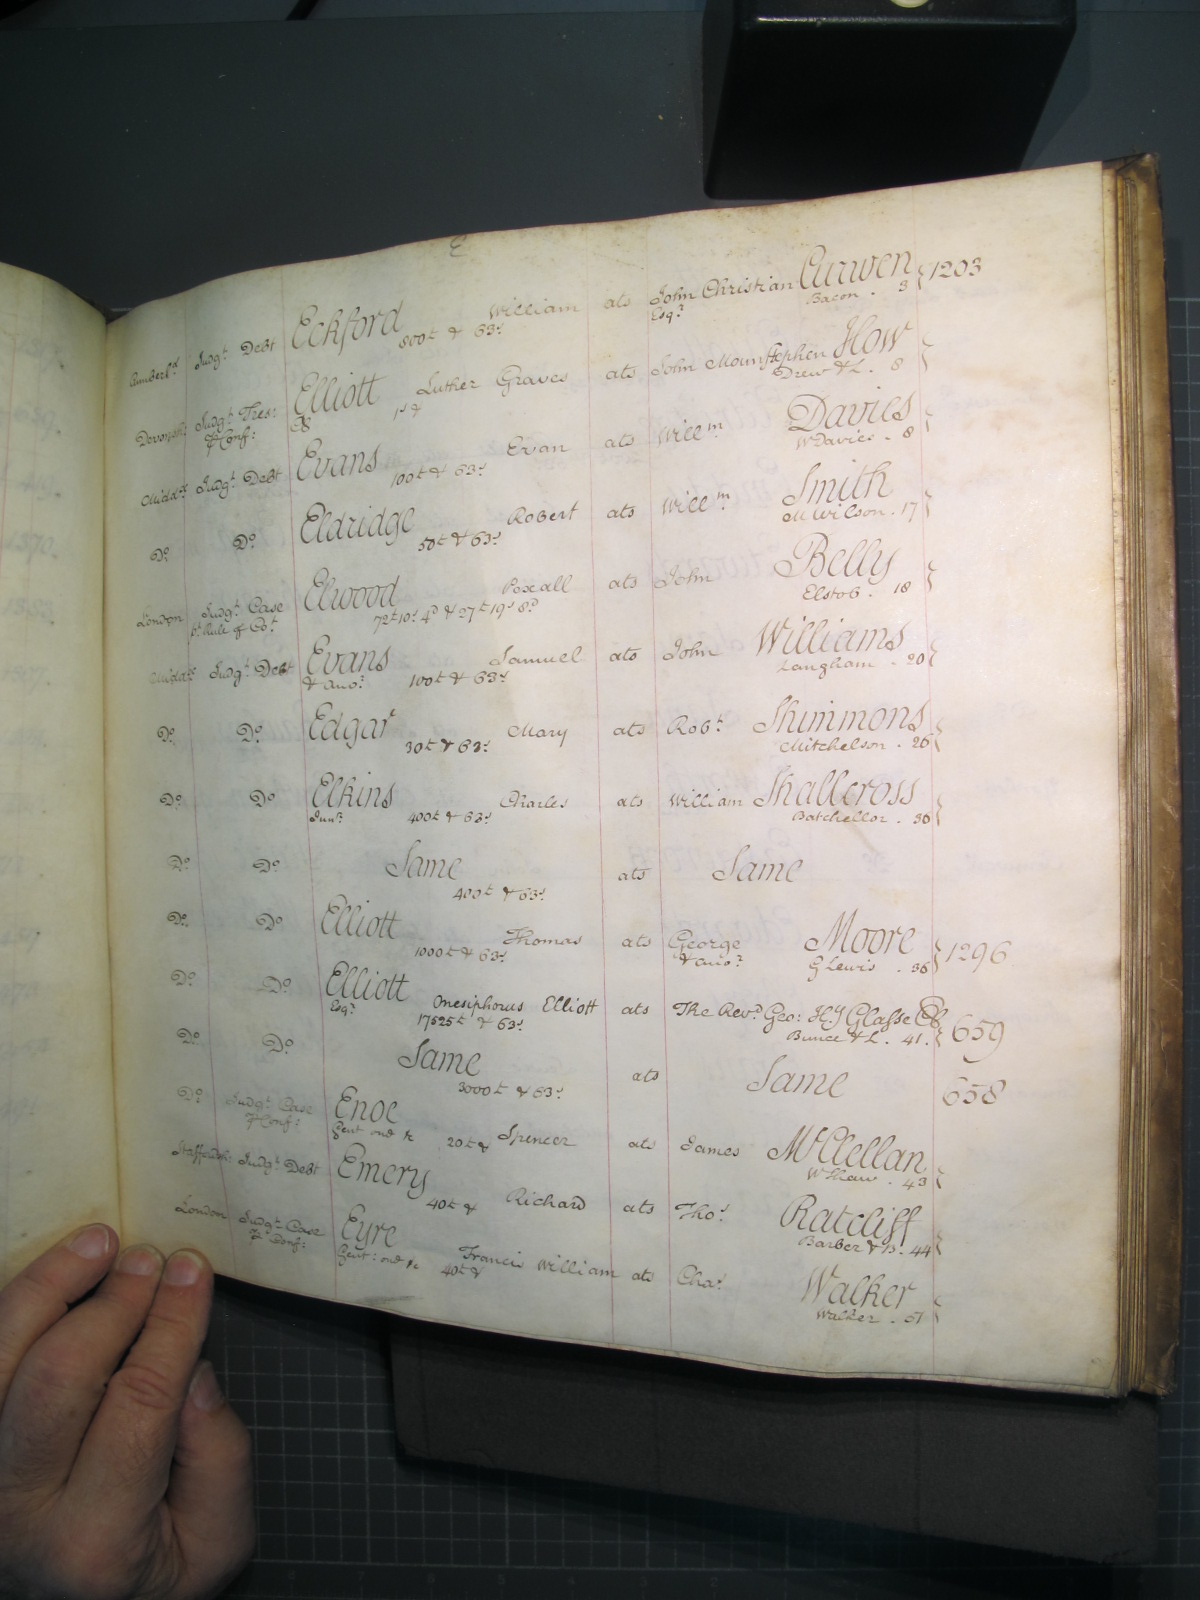 E
Cumberld Judgt Debt Eckford William ats John Christian Curwen 1203
800£ & 63s Esqr Bacon . 3
Devonsh: Judgt Tres: Elliott Luther Graves ats John Mounstephen How
& Conf: 1s & Drew & L. 8
Middx Judgt Debt Evans Evan ats Willm Davies
100£ & 63s W Davies . 8
Do Do Eldridge Robert ats Willm Smith
50£ & 63s M Wilson . 17
London Judgt Case Elwood Poxall ats John Belly
pt Rule of Cot 72£ 10s 4d & 27£ 19s 8d Elstob . 18
Middx Judgt Debt Evans Samuel ats John Williams
& anor 100£ & 63s Langham . 20
Do Do Edgar Mary ats Robt Shimmons
30£ & 63s Mitchelson . 26
Do Do Elkins Charles ats William Shallcross
Junr 400£ & 63s Batchellor . 30
Do Do Same ats Same
400£ & 63s
Do Do Elliott Thomas ats George Moore 1296
1000£ & 63s & anor G Lewis . 36
Do Do Elliott Onesiphorus Elliott ats The Revd Geo: H J Glasse 659
Esqr 17525£ & 63s Bunce & L . 41.
Do Do Same ats Same 658
3000£ & 63s
Do Judgt Case Enoe Spencer ats Eames McClellan
& Conf: Gent one &c 20£ & W Shaw . 43
Staffordsh: Judgt Debt Emery Richard ats Thos Ratcliff
40£ & Barber & B. 44
London Judgt Case Eyre Francis William ats Chas Walker
& Conf: Gent: one &c 40£ & Walker . 51